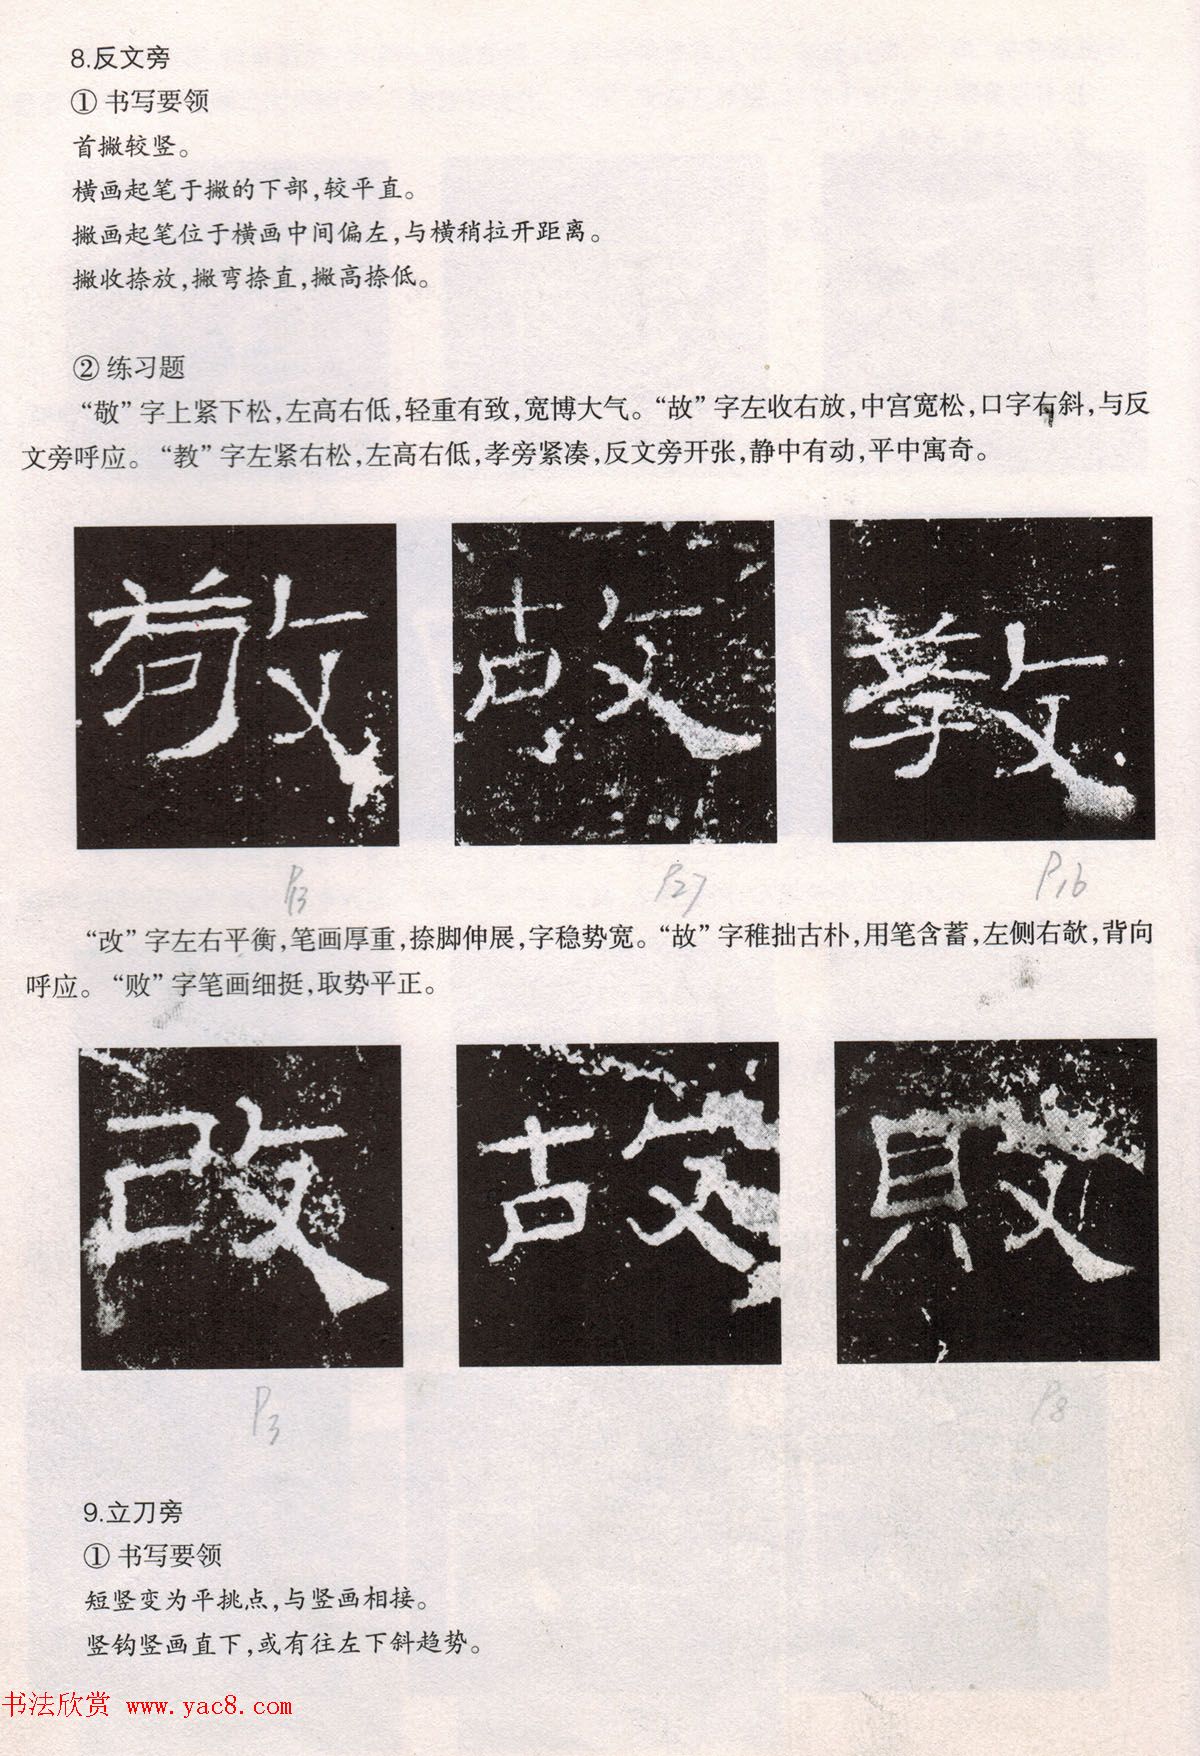 8.反文旁
① 书写要领
首撇较竖。
横画起笔于撇的下部,较平直。
撇画起笔位于横画中间偏左,与横稍拉开距离。
撇收捺放,撇弯捺直,撇高捺低。
② 练习题
“敬”字上紧下松,左高右低,轻重有致,宽博大气。“故”字左收右放,中宫宽松,口字右斜,与反
文旁呼应。“教”字左紧右松,左高右低,孝旁紧凑,反文旁开张,静中有动,平中寓奇。
敬 故 教
P13 P27 P16
“改”字左右平衡,笔画厚重,捺脚伸展,字稳势宽。“故”字稚拙古朴,用笔含蓄,左侧右欹,背向
呼应。“败”字笔画细挺,取势平正。
改 故 敗
P3 P8
9.立刀旁
① 书写要领
短竖变为平挑点,与竖画相接。
竖钩竖画直下,或有往左下斜趋势。
书法欣赏 www.yac8.com